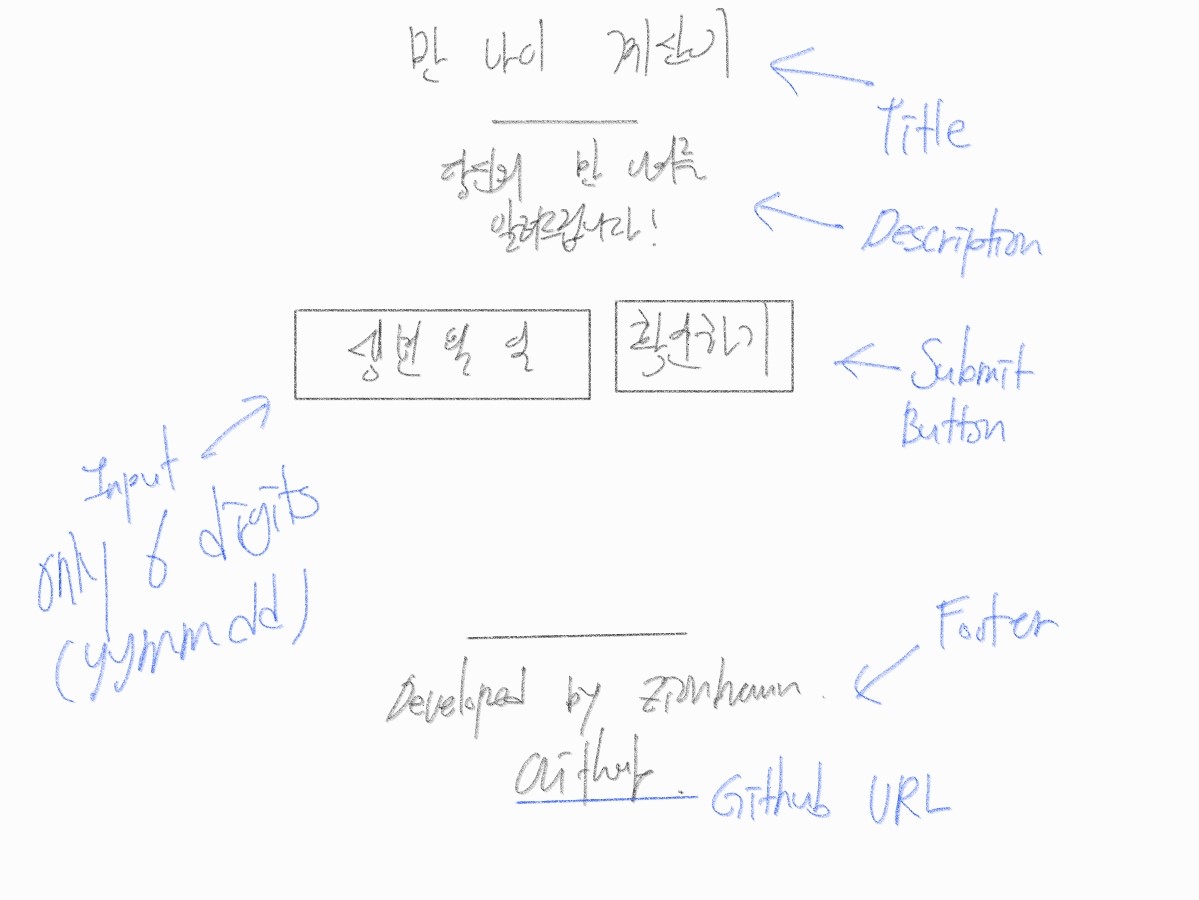 만 나이 계산기
Title
당신의 만 나이를
알려드립니다!
Description
생년월일
확인하기
Submit
Button
Input
only 6 digits
(yymmdd)
Footer
Developed by Zionhann.
Github.
Github URL